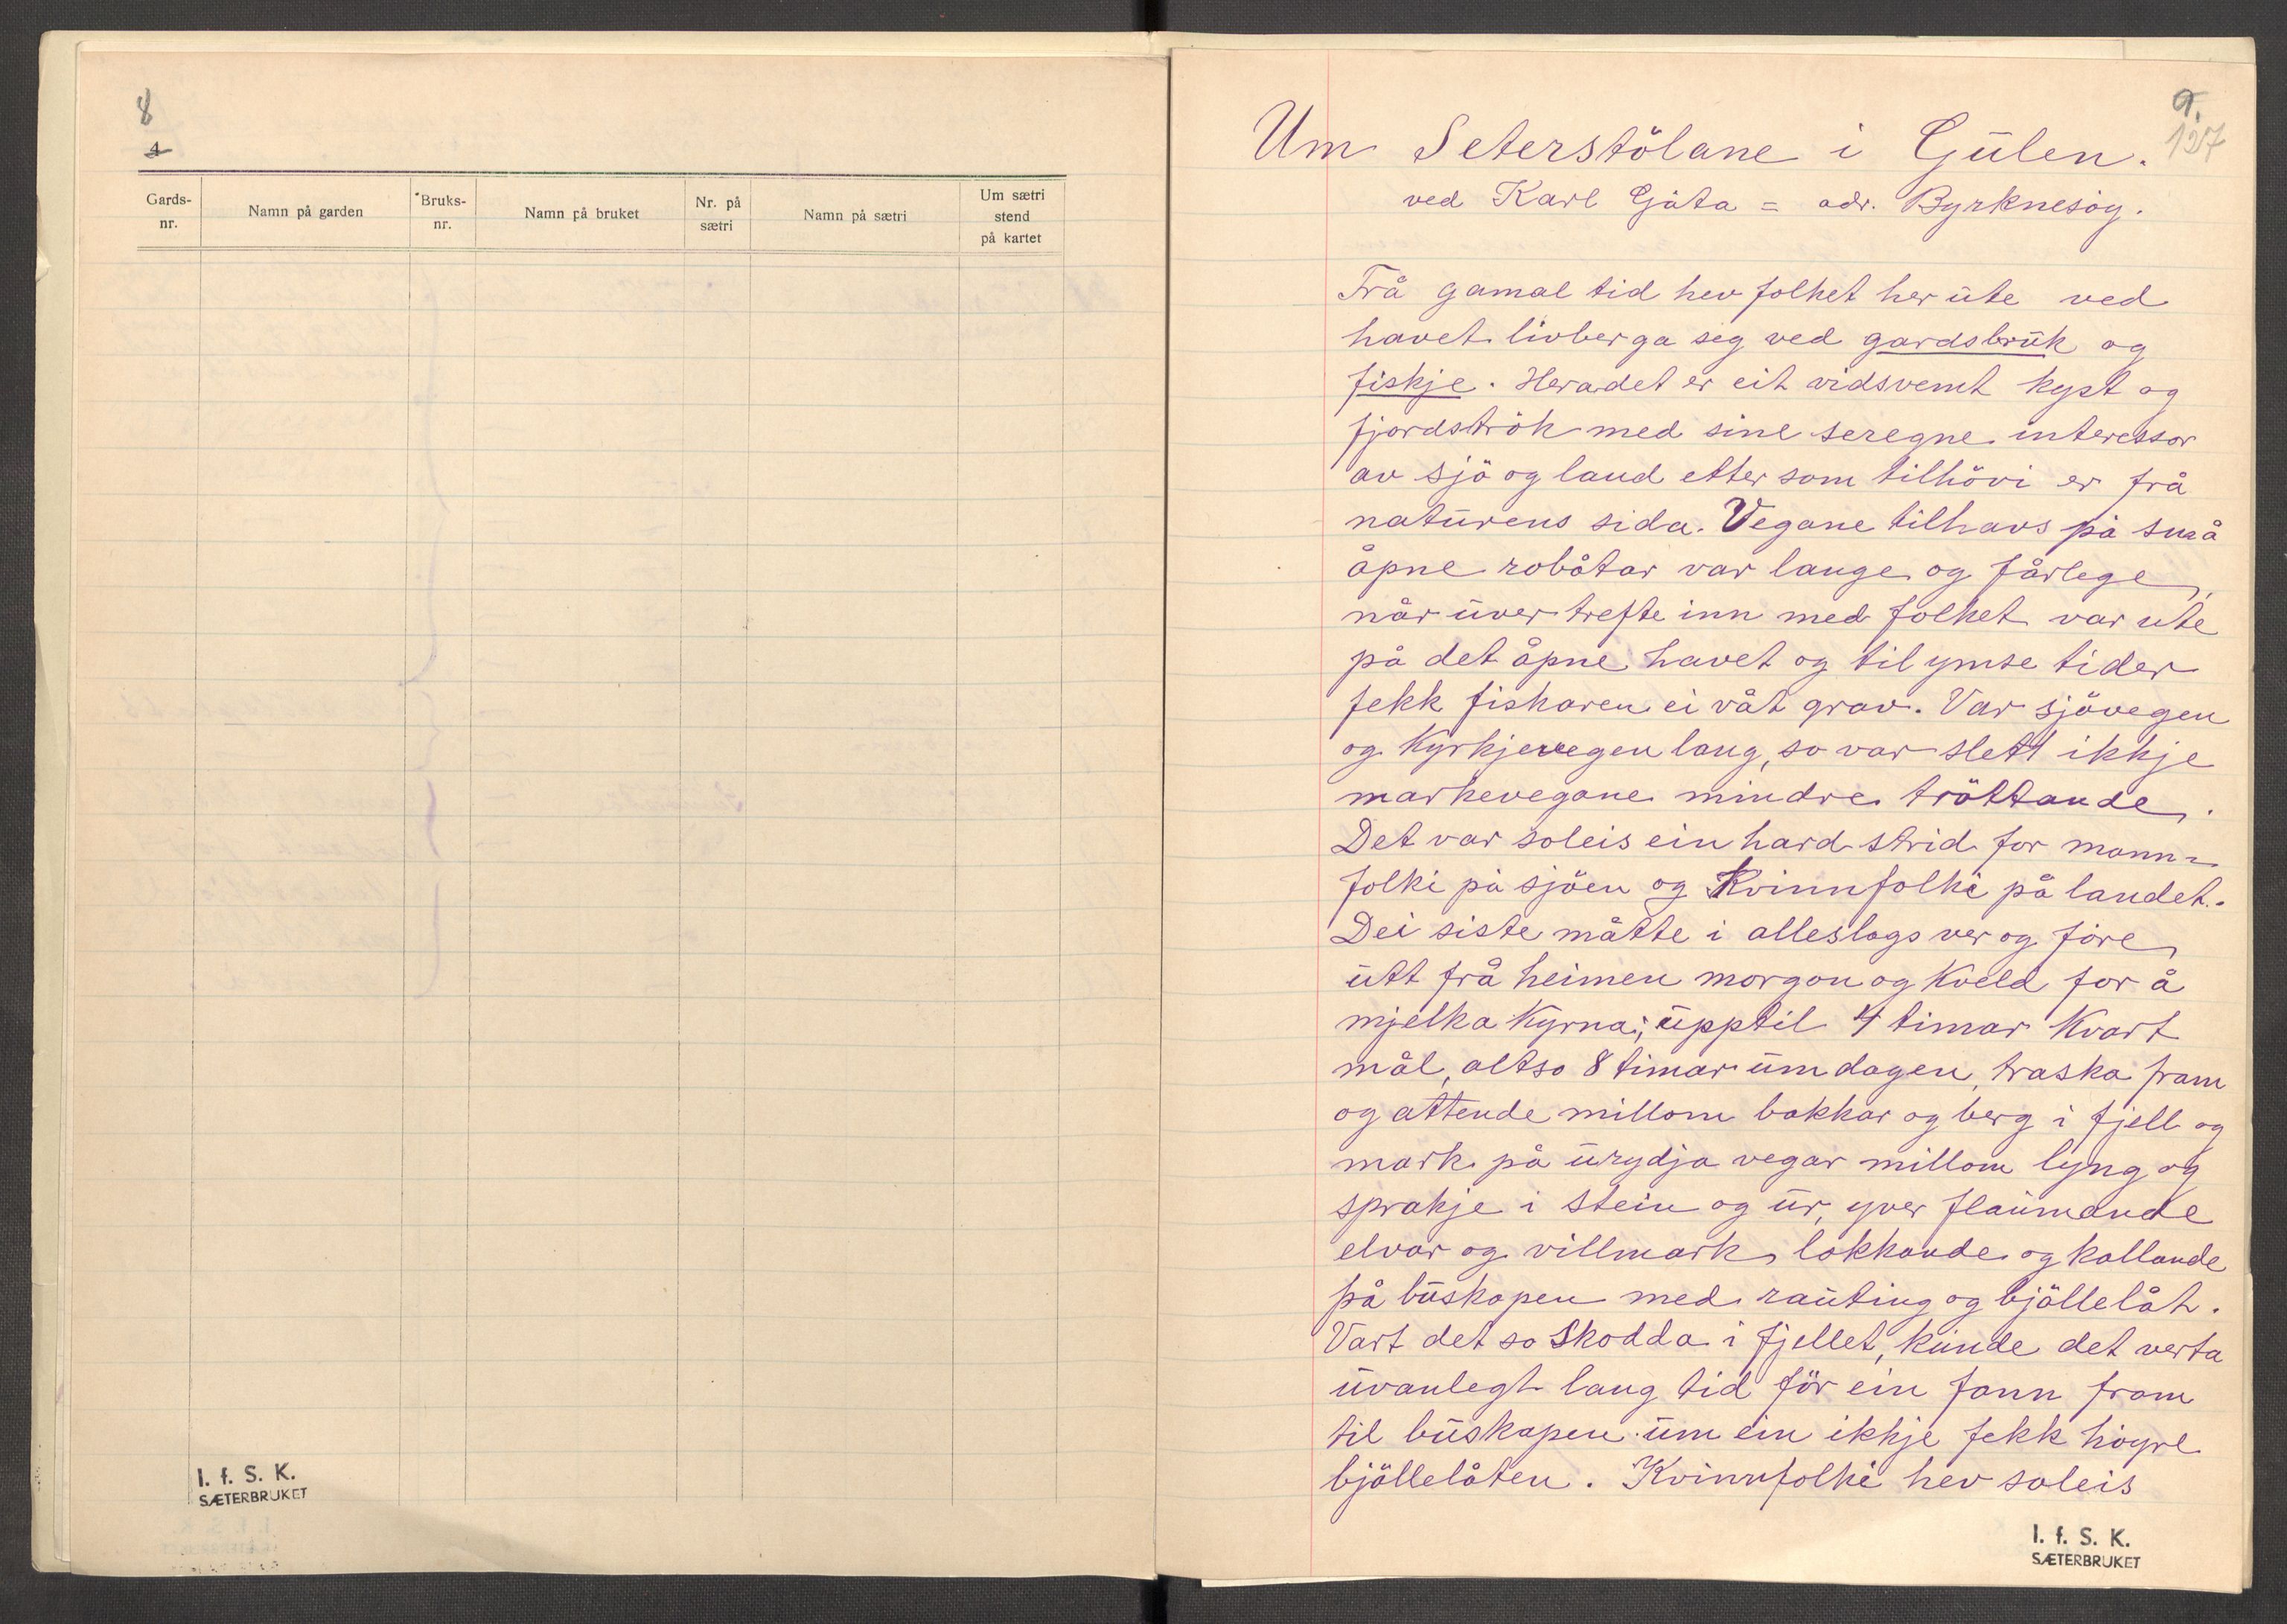 8
4
Gards-
nr.
Namn på garden
*Bruks-
nr.
Namn på bruket
Nr. på
sætri
Namn på sætri
Um sætri
stend
på kartet
I. f. S. K.
SÆTERBRUKET
9.
127
Um Seterstölane i Gulen.
ved Karl Gåta = adr. Byrknesöy.
Frå gamal tid hev folket her ute ved
havet livberga seg ved gardsbruk og
fiskje. Heradet er eit vidsvemt kyst og
fjordströk med sine seregne interessor
av sjö og land etter som tilhövi er frå
naturens sida. Vegane tilhavs på små
åpne robåtar var lange og fårlege,
når uver trefte inn med folket var ute
på det åpne havet og til ymse tider
fekk fiskaren ei våt grav. Var sjövegen
og kyrkjevegen lang, so var slett ikkje
markevegane mindre tröttande.
Det var soleis ein hard strid for mann=
folki på sjöen og kvinnfolki på landet.
Dei siste måtte i alleslags ver og före
utt frå heimen morgon og kveld for å
mjelka kyrna; upptil 4 timar kvart
mål, altso 8 timar um dagen, traska fram
og attende millom bakkar og berg i fjell og
mark på urydja vegar millom lyng og
sprakje i stein og ur, yver flaumande
elvar og villmark, lokkande og kallande
på buskapen med rauting og bjöllelåt.
Vart det so skodda i fjellet, kunde det verta
uvanlegt lang tid för ein fann fram
til buskapen um ein ikkje fekk höyre
bjöllelåten. Kvinnfolki hev soleis
I. f. S. K.
SÆTERBRUKET